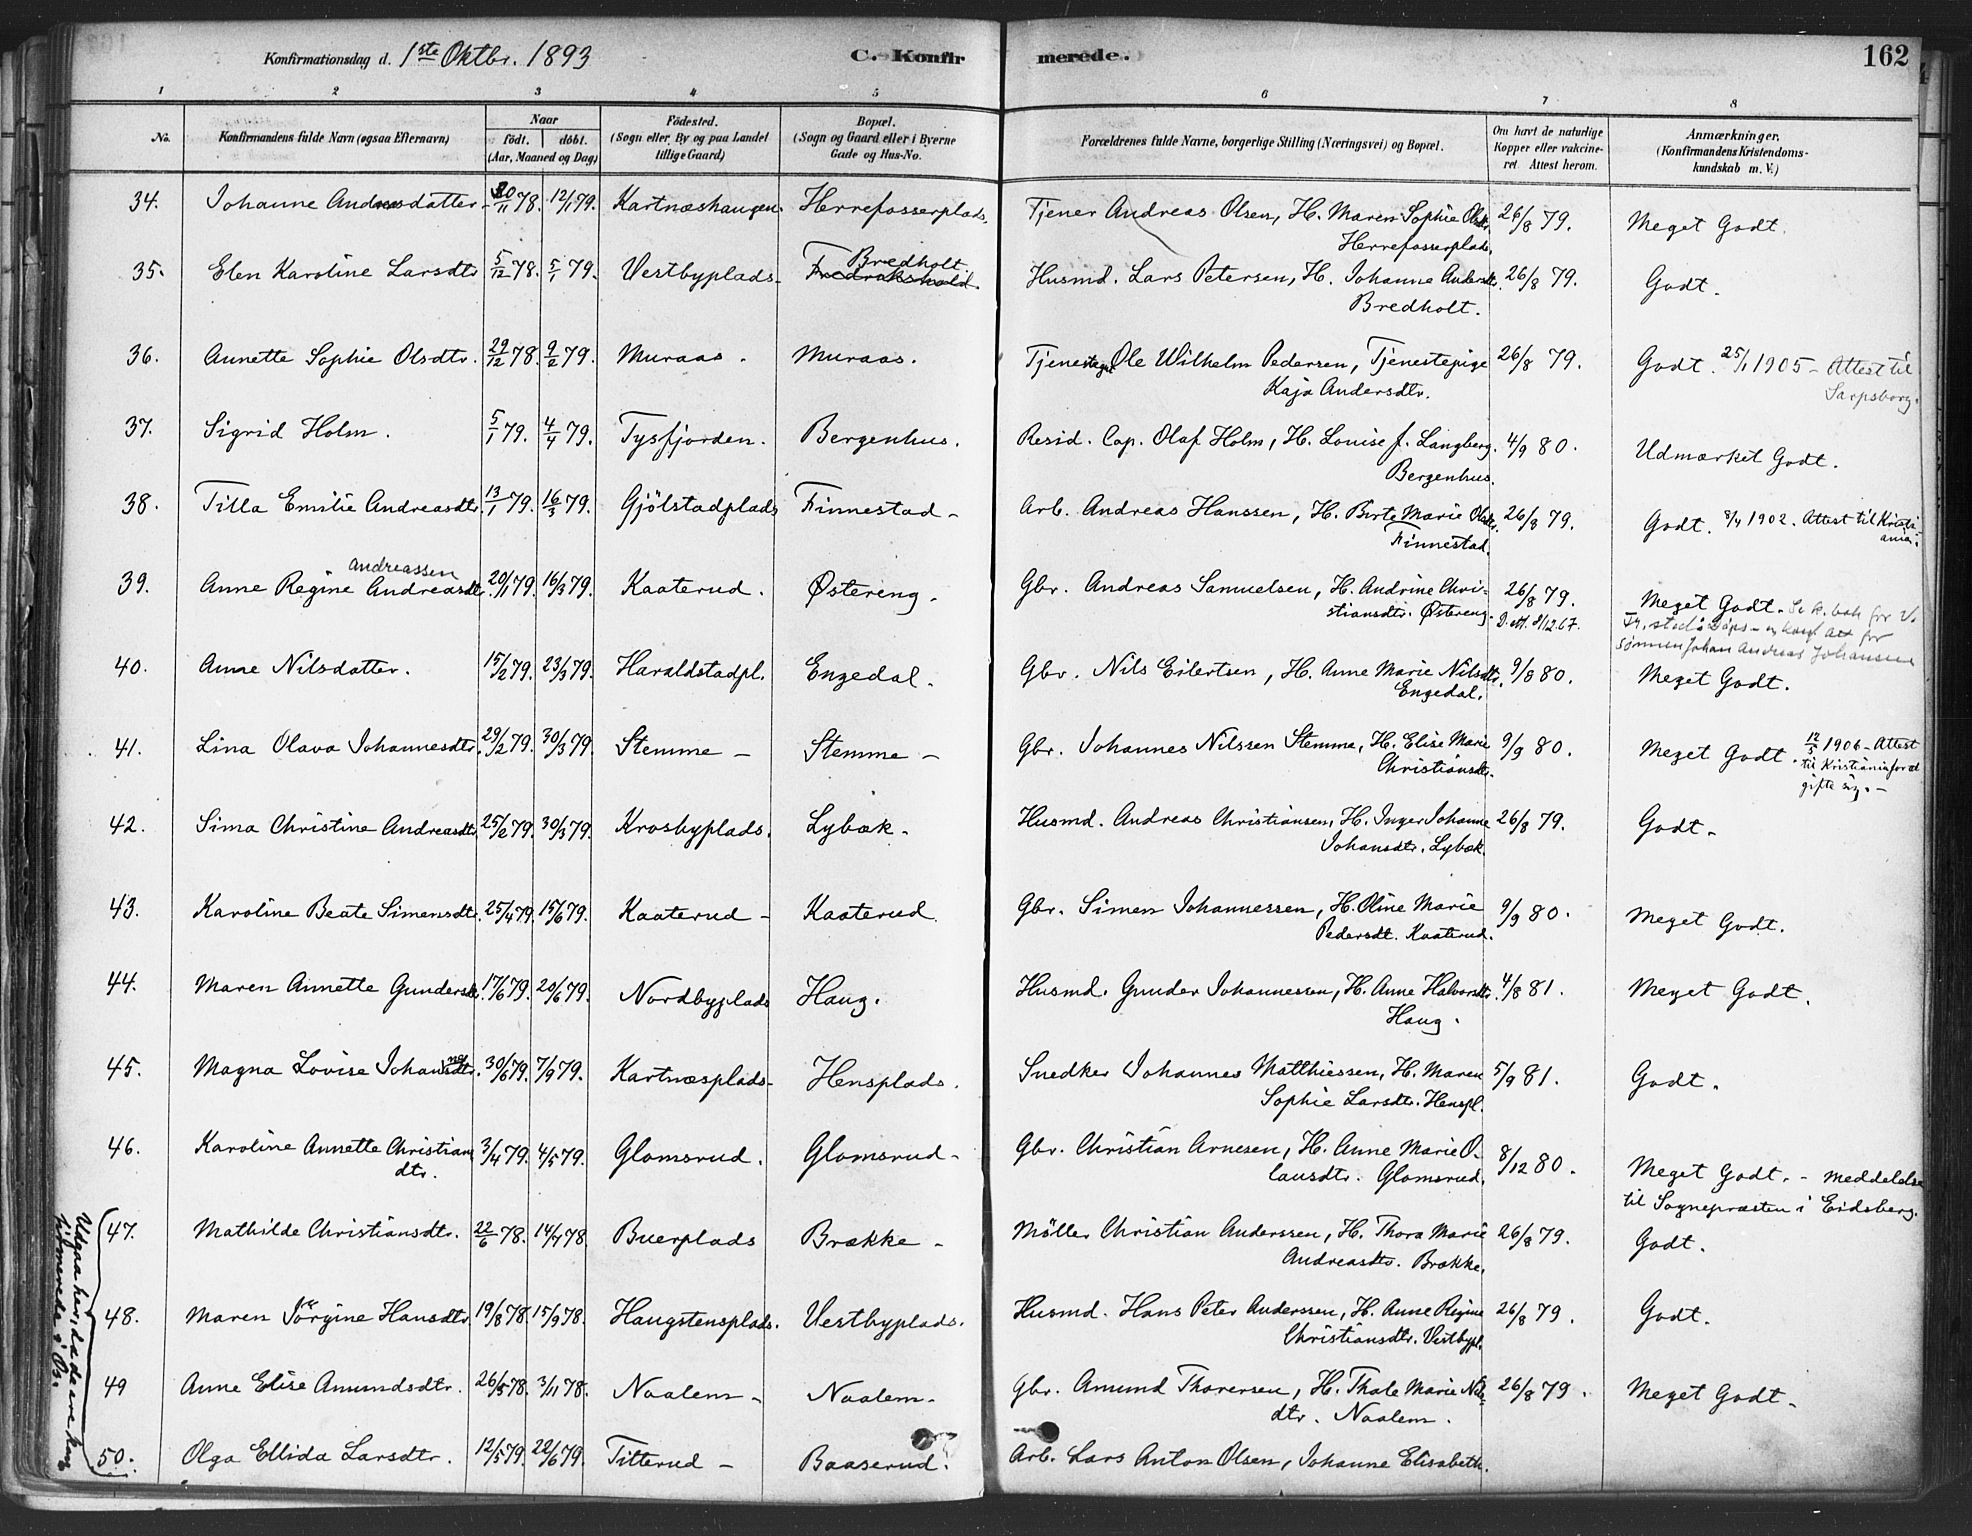 Konfirmationsdag d. 1ste Oktbr. 1893
C. Konfir
merede.
162
1 2 3 4 5 6 7 8
No.
Konfirmandens fulde Navn (ogsaa Efternavn)
Naar
födt. döbt.
(Aar, Maaned og Dag)
Födested.
(Sogn eller By og paa Landet
tillige Gaard)
Bopæl.
(Sogn og Gaard eller i Byerne
Gade og Hus-No.
Forældrenes fulde Navne, borgerlige Stilling (Næringsvei) og Bopæl.
Om havt de naturlige
Kopper eller vakcine-
ret Attest herom.
Anmærkninger.
(Konfirmandens Kristendoms-
kundskab m. V.)
34. Johanne Andreasdatter 20/11 78. 12/1 79. Kartnæshaugen. Herrefosserplads. Tjener Andreas Olsen, H. Maren Sophie Olsdtr. 26/8 79. Meget Godt.
Herrefosserplads.
35. Elen Karoline Larsdtr 5/12 78. 5/1 79. Vestbyplads. Bredholt Husmd. Lars Petersen, H. Johanne Andersdtr. 26/8 79. Godt.
Bredholt.
36. Annette Sophie Olsdtr. 29/12 78. 9/2 79. Muraas. Muraas. Ole Wilhelm Pedersen, Tjenestepige 26/8 79. Godt. 25/1 1905 - Attest til
Kaja Andersdtr. Sarpsborg.
37. Sigrid Holm. 5/1 79. 4/4 79. Tysfjorden. Bergenhus. Resid. Cap. Olaf Holm, H. Louise f. Langberg. 4/9 80. Udmærket Godt.
Bergenhus.
38. Tilla Emilie Andreasdtr. 13/1 79. 16/3 79. Gjölstadplads Finnestad - Arb. Andreas Hanssen, H. Berte Marie Olsdtr. 26/8 79. Godt. 8/4 1902. Attest til Kristi
Finnestad. ania.
Andreassen
39. Anne Regine Andreasdtr. 20/1 79. 16/3 79. Kaaterud. Østereng. Gbr. Andreas Samuelsen, H. Andrine Chri- 26/8 79. Meget Godt. Se k.bok for V.
stiansdtr. Østereng. D.att. 8/12.67. Fr.stad
sønnen Johan Andreas Johansen
40. Anne Nilsdatter. 15/2 79. 23/3 79. Haraldstadpl. Engedal. Gbr. Nils Eilertsen, H. Anne Marie Nilsdtr. 9/8 80. Meget Godt.
Engedal.
41. Lina Olava Johannesdtr. 29/2 79. 30/3 79. Stemme - Stemme - Gbr. Johannes Nilssen Stemme, H. Elise Marie 9/9 80. Meget Godt. 12/5 1906 - Attest
Christiansdtr. til Kristiania for at
gifte sig. -
42. Sima Christine Andreasdtr. 25/2 79. 30/3 79. Krosbyplads. Lybæk. Husmd. Andreas Christiansen, H. Inger Johanne 26/8 79. Godt.
Johansdtr. Lybæk.
43. Karoline Beate Simensdtr. 25/4 79. 15/6 79. Kaaterud - Kaaterud. Gbr. Simen Johannessen, H. Oline Marie 9/9 80. Meget Godt.
Pedersdt. Kaaterud.
44. Maren Annette Gundersdtr. 17/6 79. 20/6 79. Nordbyplads Haug. Husmd. Gunder Johannessen, H. Anne Halvorsdtr. 4/8 81. Meget Godt.
Haug.
45. Magna Lovise Johannesdtr. 30/6 79. 7/9 79. Kartnæsplads. Hensplads. Snedker Johannes Matthiessen, H. Maren 5/9 81. Godt.
Sophie Larsdtr. Henspl.
46. Karoline Annette Christians 3/4 79. 4/5 79. Glomsrud. Glomsrud. Gbr. Christian Arnesen, H. Anne Marie O- 8/12 80. Meget Godt. - Meddelelse
dtr. lausdtr. Glomsrud. til Sognepræsten i Eidsberg.
47. Mathilde Christiansdtr. 22/6 78. 14/7 78 Buerplads Brække - Möller Christian Anderssen, H. Thora Marie 26/8 79. Godt.
Andreasdtr. Brække.
48. Maren Jörgine Hansdtr. 19/8 78. 15/9 78. Haugstensplads. Vestbyplads. Husmd. Hans Peter Anderssen, H. Anne Regine 26/8 79. Godt.
Christiansdtr. Vestbypl.
49 Anne Elise Amundsdtr. 26/5 78. 3/11 78. Naalem - Naalem. Gbr. Amund Thoresen, H. Thale Marie Nils- 26/8 79. Meget Godt.
dtr. Naalem.
50. Olga Ellida Larsdtr. 12/5 79. 22/6 79. Titterud - Baaserud. Arb. Lars Anton Olsen, Johanne Elisabeth.
Udgaa her, da de ere konf